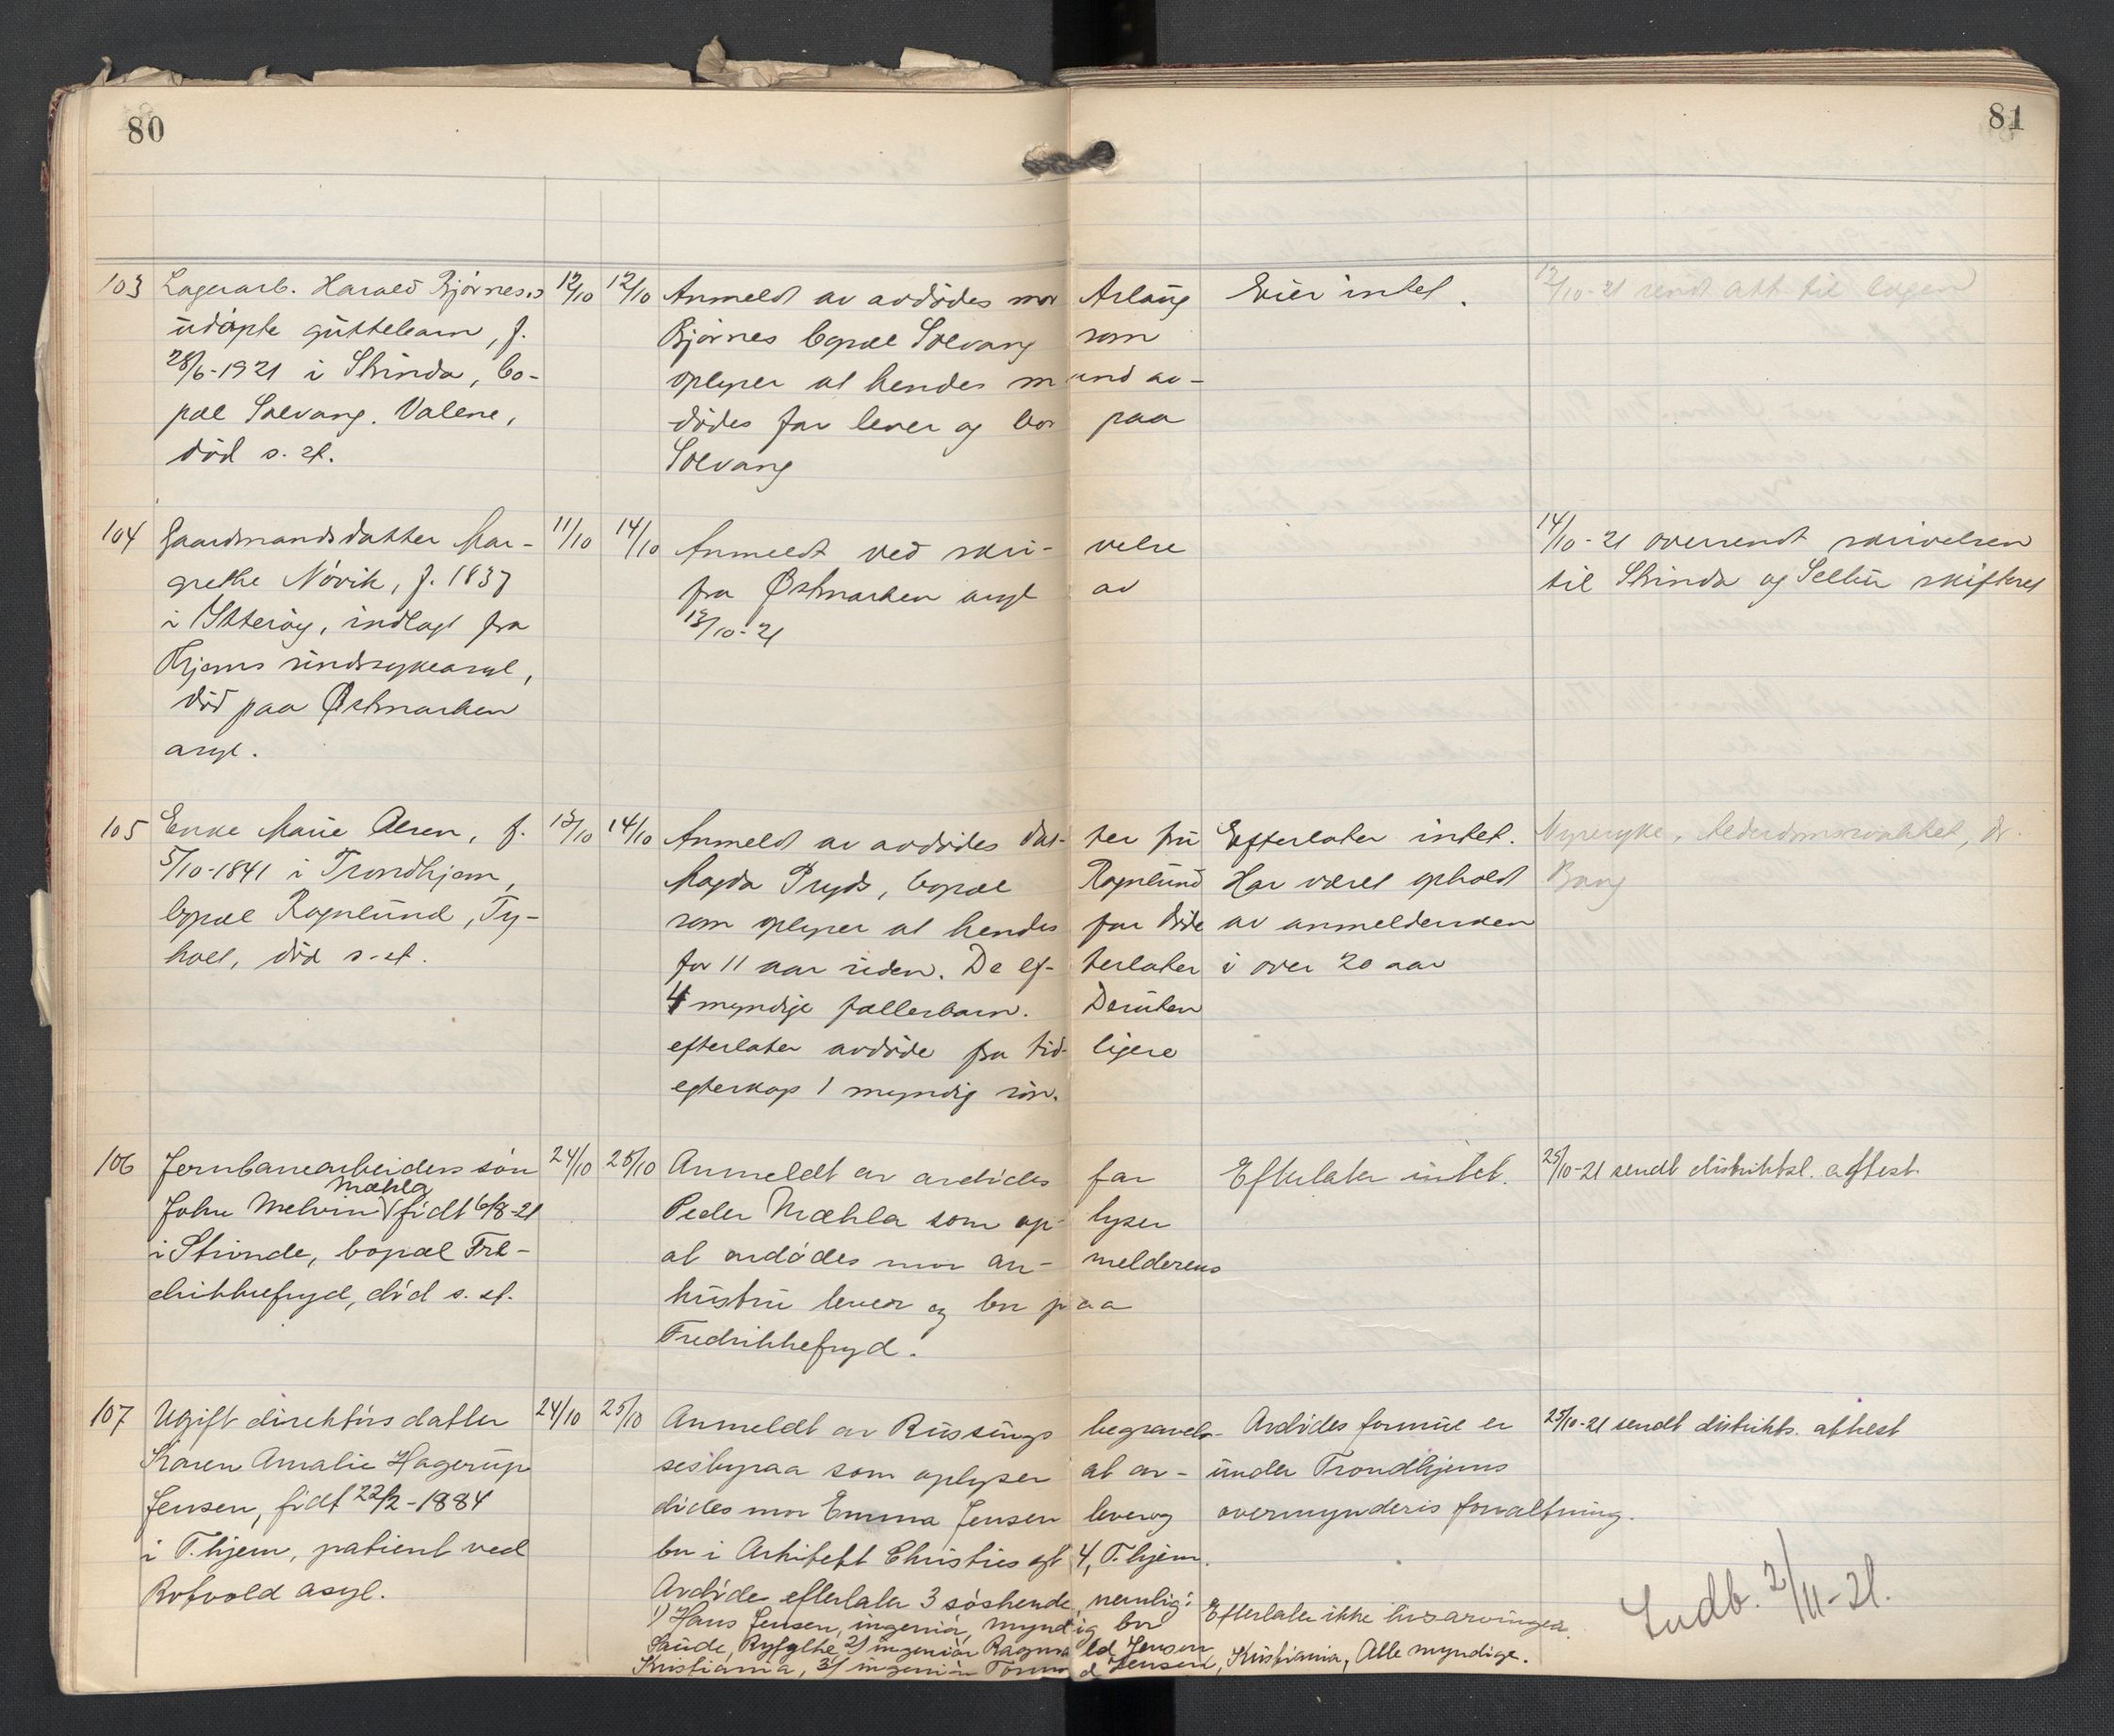 80
81
103 Lagerarb. Harald Bjørnes's 12/10 12/10 Anmeldt av avdødes mor Aslaug Eier intet. 12/10-21 sendt att. til
udøpte guttebarn, f. Bjørnes bopæl Solvang som
28/6-1921 i Strinda, bo- oplyser at hendes mand av-
pæl Solvang. Valene, dødes far lever og bor paa
død s. st. Solvang
104 Gaardmandsdatter Mar- 11/10 14/10 Anmeldt ved skri- velse 14/10-21 oversendt skrivelsen
grethe Nøvik, f. 1837 fra Østmarken asyl av til Strinda og Selbu skifteret
i Ytterøy, indlagt fra 13/10-21
Thjems sindssykeasyl,
død paa Østmarken
asyl.
105 Enke Marie Olsen, f. 13/10 14/10 Anmeldt av avdødes dat- ter fru Efterlater intet. Nyresyke,
5/10-1841 i Trondhjem, Magda Pryds, bopæl Rognlund Har været opholdt Bang
bopæl Rognlund, Ty- som oplyser at hendes far døde av anmeldersken
holt, død s. st. for 11 aar siden. De ef- terlater i over 20 aar
4 myndige fællesbarn. Desuten
efterlater avdøde fra tid- ligere
egteskap 1 myndig søn.
106 Jernbanearbeiders søn 24/10 25/10 Anmeldt av avdødes far Efterlater intet. 25/10-21 sendt distriktsl. attest
Mæhla
John Melvin født 6/8-21 Peder Mæhla som op- lyser
i Strinde, bopæl Fre- at avdødes mor an- melderens
drikkefryd, død s. st. hustru lever og bor paa
Fredrikkefryd.
107 Ugift direktørsdatter 24/10 25/10 Anmeldt av Russings begravel- Avdødes formue er 25/10-21 sendt distrikts. attest
Karen Amalie Hagerup sesbyraa som oplyser at av- under Trondhjems
Jensen, født 22/2-1884 dødes mor Emma Jensen lever og overmynderis forvaltning.
i T.hjem, patient ved bor i Arkitekt Christies gt 4, T.hjem.
Rotvold asyl. Avdøde efterlater 3 søskende, nemlig:
1) Hans Jensen, ingeniør, myndig bor Efterlater ikke livsarvinger. Indb. 2/11-21.
Saude, Ryfylke 2) ingeniør Ragnvald Jensen
Kristiania, 3) ingeniør Tormod Jensen, Kristiania, Alle myndige.